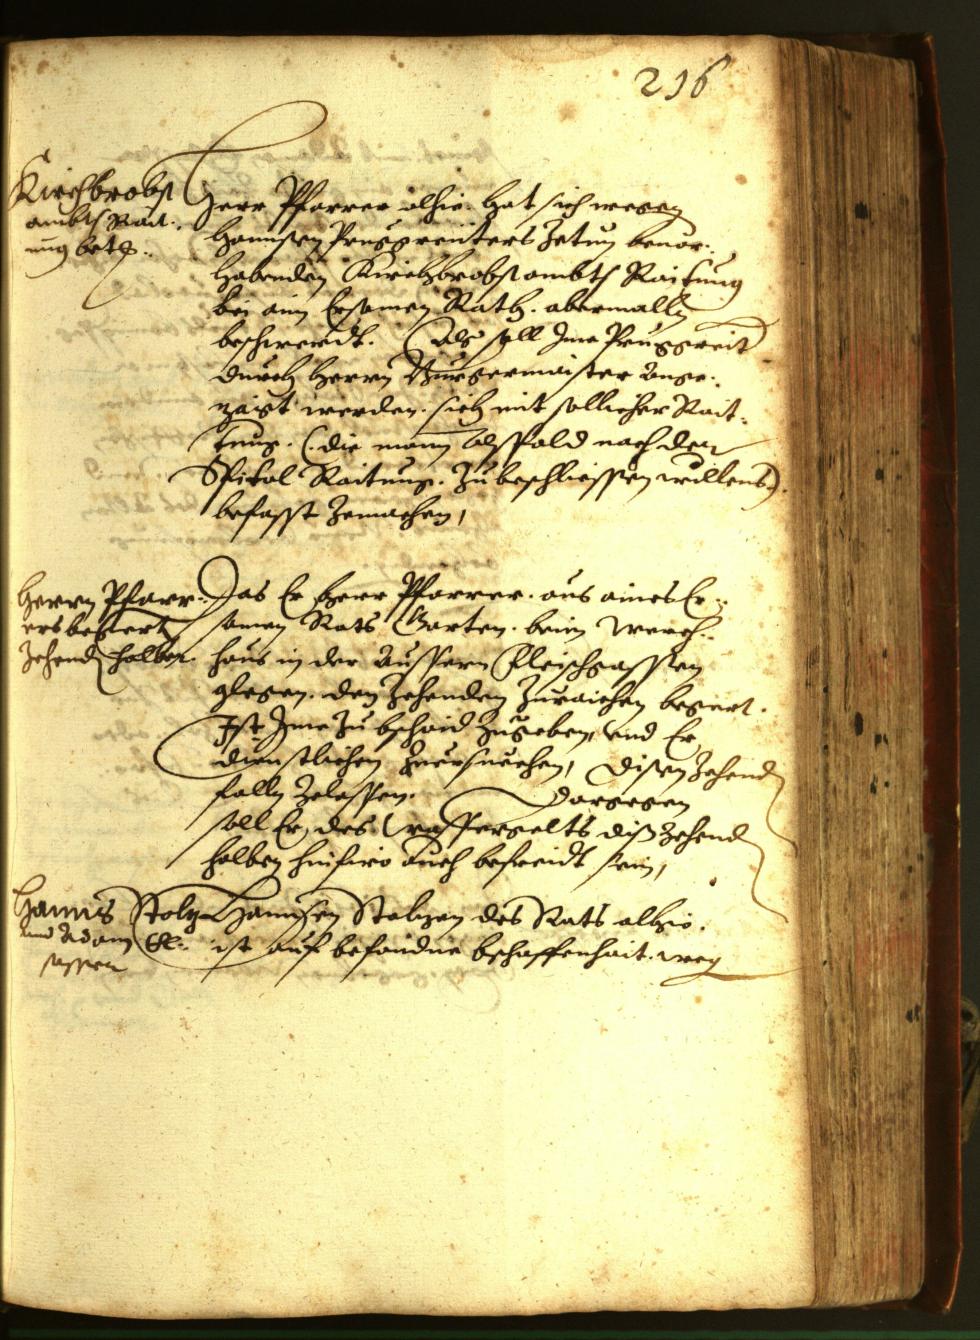 216
Kirchbrobst
ambts Rait:
ung betr:
Herr Pfarrer alhie. hat sich wegen
Hannsen Pruggreiters Zetun beuor-
habenden Kirchbrobst ambts Raitung
bei aim Ersamen Rath. abermalln
beschwerdt. Als soll Ime Pruggreit
durch Herrn Burgermaister ange-
zaigt werden. sich mit sollicher Rait-
tung. (die mann alsspald nach der
Spital Raitung. Zu beschliessen willens)
befasst Zemachen,
Herrn Pfarr-
ers begert
Zehend halber.
Das Er Herr Pfarrer. aus aines Er-
samen Rats Garten. beim Werch-
haus in der Aussern Fleischgassen
glegen. den Zehenden Zuraichen begert.
Ist Ime Zu bschaid Zugeben, und Er
dienstlichen Zuersuechen, disen Zehend
falln Zelassen. Dargegen
soll Er, des Wassergelts diss Zehend
halben hinfiro auch befreidt sein,
Hanns Stolz
und Adam
Hannsen Stolzen des Rats alhie.
ist auf befundne bschaffenhait. weg